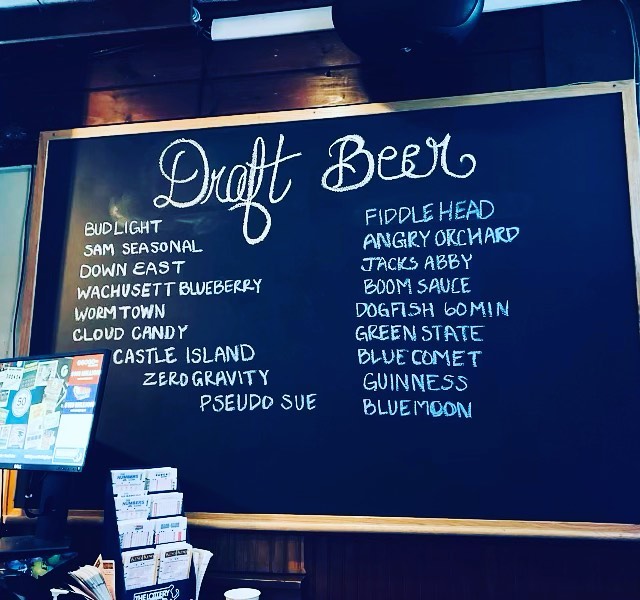 Draft Beer
BUD LIGHT
SAM SEASONAL
DOWN EAST
WACHUSETT BLUEBERRY
WORMTOWN
CLOUD CANDY
CASTLE ISLAND
ZERO GRAVITY
PSEUDO SUE
FIDDLEHEAD
ANGRY ORCHARD
JACKS ABBY
BOOM SAUCE
DOGFISH 60 MIN
GREEN STATE
BLUE COMET
GUINNESS
BLUEMOON
THE LOTTERY